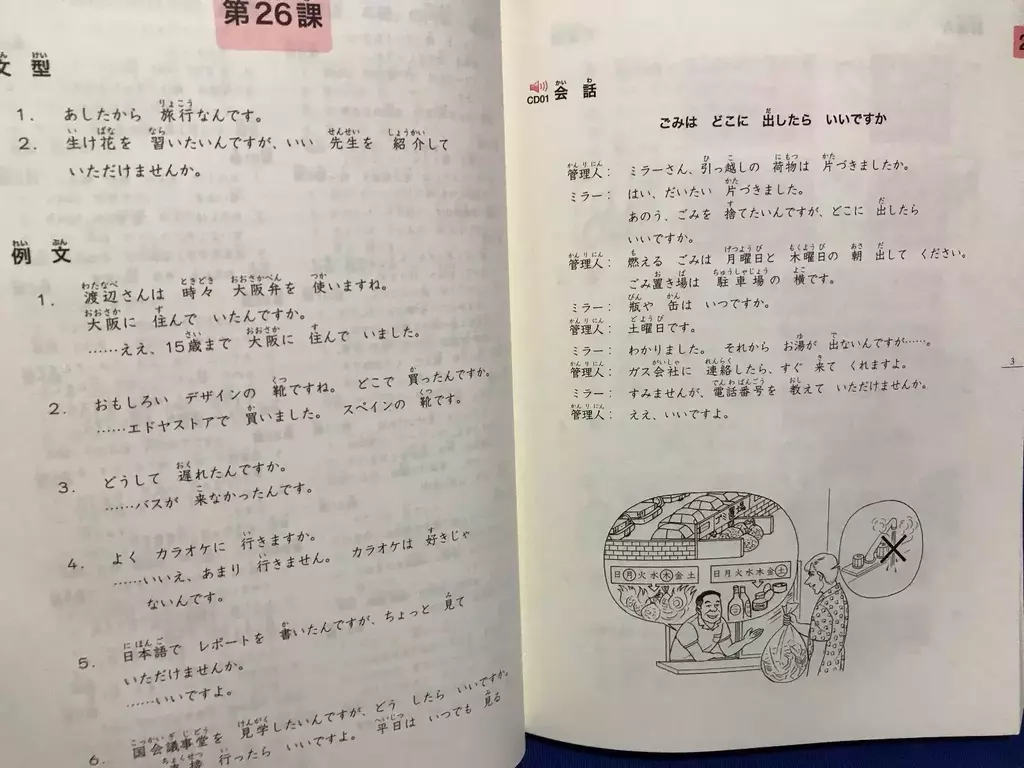 第26課
文型
1. あしたから 旅行なんです。
2. 生け花を 習いたいんですが、いい 先生を 紹介して
いただけませんか。
例文
1. 渡辺さんは 時々 大阪弁を 使いますね。
大阪に 住んで いたんですか。
……ええ、15歳まで 大阪に 住んで いました。
2. おもしろい デザインの 靴ですね。 どこで 買ったんですか。
……エドヤストアで 買いました。 スペインの 靴です。
3. どうして 遅れたんですか。
……バスが 来なかったんです。
4. よく カラオケに 行きますか。
……いいえ、あまり 行きません。 カラオケは 好きじゃ
ないんです。
5. 日本語で レポートを 書いたんですが、ちょっと 見て
いただけませんか。
……いいですよ。
6. 国会議事堂を 見学したいんですが、どう したら いいですか。
……直接 行ったら いいですよ。 平日は いつでも 見る
CD01
会話
ごみは どこに 出したら いいですか
管理人: ミラーさん、引っ越しの 荷物は 片づきましたか。
ミラー: はい、だいたい 片づきました。
あのう、ごみを 捨てたいんですが、どこに 出したら
いいですか。
管理人: 燃える ごみは 月曜日と 木曜日の 朝 出して ください。
ごみ置き場は 駐車場の 横です。
ミラー: 瓶や 缶は いつですか。
管理人: 土曜日です。
ミラー: わかりました。 それから お湯が 出ないんですが……。
管理人: ガス会社に 連絡したら、すぐ 来て くれますよ。
ミラー: すみませんが、電話番号を 教えて いただけませんか。
管理人: ええ、いいですよ。
日月火水木金土
日月火水木金土
3